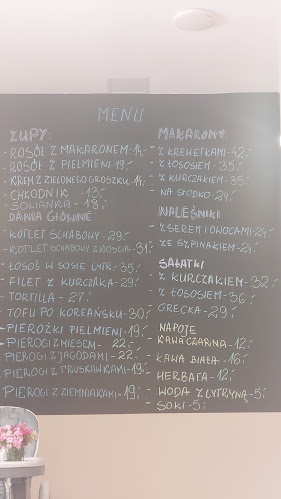 MENU
ZUPY:
- ROSÓŁ Z MAKARONEM - 14,-
- ROSÓŁ Z PIELMIENI - 19,-
- KREM Z ZIELONEGO GROSZKU - 14,-
- CHŁODNIK - 13,-
- SOLIANKA - 18,-
DANIA GŁÓWNE
- KOTLET SCHABOWY - 29,-
- KOTLET SCHABOWY Z KOŚCIĄ - 31,-
- ŁOSOŚ W SOSIE CYTR - 35,-
- FILET Z KURCZAKA - 29,-
- TORTILLA - 27,-
- TOFU PO KOREAŃSKU - 30,-
- PIEROŻKI PIELMIENI - 19,-
- PIEROGI Z MIĘSEM - 22,-
- PIEROGI Z JAGODAMI - 22,-
- PIEROGI Z TRUSKAWKAMI - 19,-
PIEROGI Z ZIEMNIAKAMI - 19,-
MAKARONY:
- Z KREWETKAMI - 42,-
- Z ŁOSOSIEM - 35,-
- Z KURCZAKIEM - 35,-
- NA SŁODKO - 24,-
NALEŚNIKI
- Z SEREM I OWOCAMI - 24,-
- ZE SZPINAKIEM - 24,-
SAŁATKI
- Z KURCZAKIEM - 32,-
- Z ŁOSOSIEM - 36,-
- GRECKA - 29,-
NAPOJE
- KAWA CZARNA - 12,-
- KAWA BIAŁA - 16,-
- HERBATA - 12,-
- WODA Z CYTRYNĄ - 5,-
- SOKI - 5,-